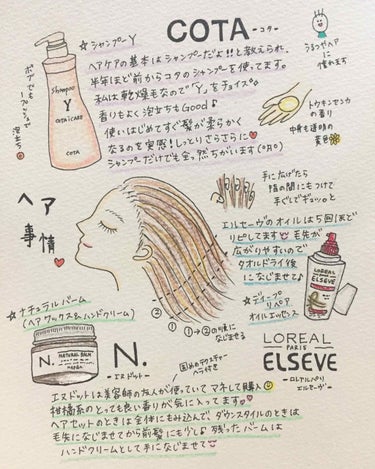 COTA
-コタ-
☆シャンプーY
ヘアケアの基本はシャンプーだよ!!と教えられ、
半年ほど前からコタのシャンプーを使ってます。
私は乾燥毛なので「Y」をチョイス。
香りもよく泡立ちもGood♪
使いはじめてすぐ髪が柔らかく
なるのを実感!しっとりさらさらに♥
シャンプーだけでも全っ然ちがいます(°д°)
うるツヤヘア
に
憧れます
Shampoo
Y
COTA i CARE
COTA
トウキンセンカ
の香り
中身も透明の
黄色
ヘア
事情
手に広げたら
指の間にもつけて
手ぐしでギュッと
エルセーヴのオイルは5回ほど
リピしてます
毛先が
広がりやすいので
タオルドライ後
になじませて♪
☆ディープ
リペア
オイルエッセンス
LOREAL
ELSEVE
LOREAL
PARIS
ELSEVE
-ロレアルパリ
エルセーヴ-
② ① ①→②の順に
なじませる
☆ナチュラルバーム
(ヘアワックス&ハンドクリーム)
N.
NATURAL BALM
N.
-エヌドット-
固めのテクスチャー
ヘラ付き
エヌドットは美容師の友人が使っていてマネして購入
柑橘系のとっても良い香りが気に入ってます。♥
ヘアセットのときは全体にもみ込んで、ダウンスタイルのときは
毛先になじませてから前髪にも少し♪ 残ったバームは
ハンドクリームとして手になじませて